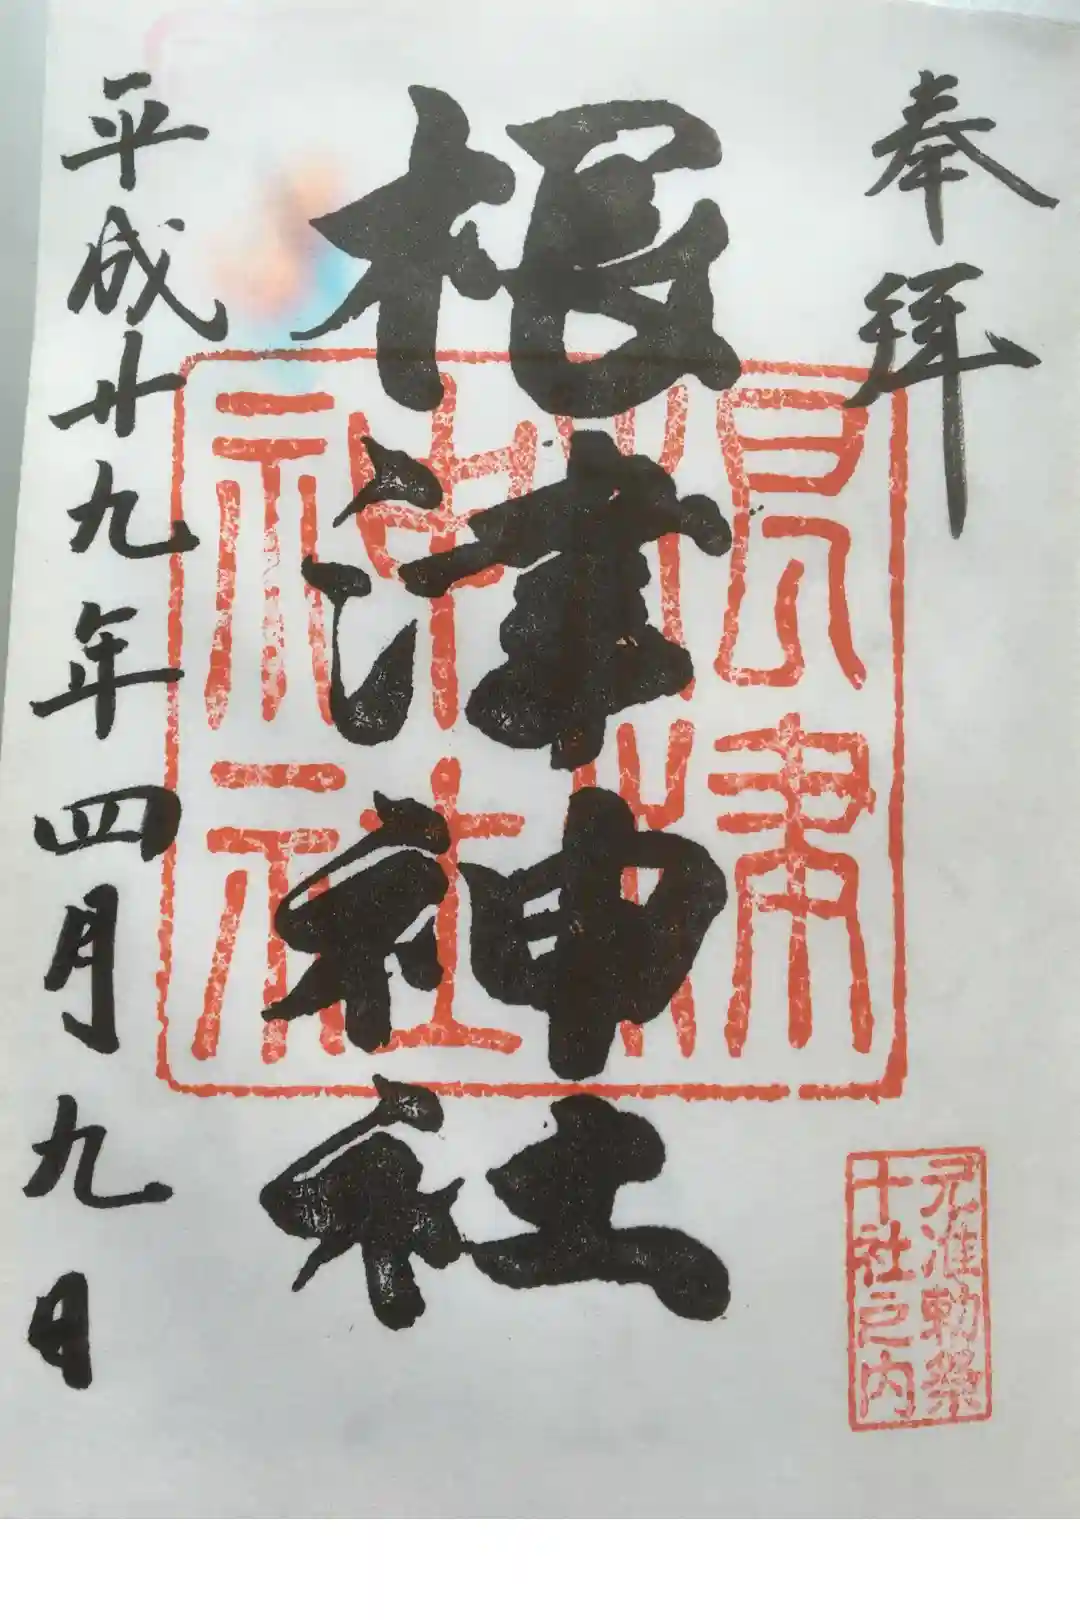 奉拜
根津神社
根津神社
元准勅祭
十社之内
平成廿九年四月九日